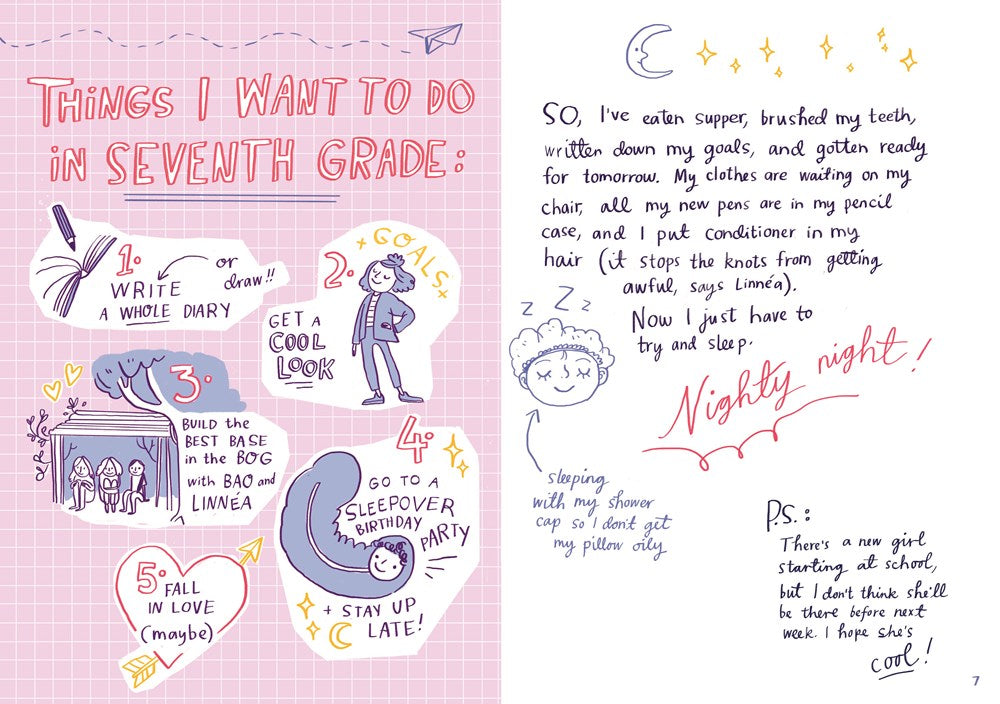 THINGS I WANT TO DO
IN SEVENTH GRADE:
1.
WRITE
or
draw!!
A WHOLE DIARY
2.
GOALS
GET A
COOL
LOOK
3.
BUILD the
BEST BASE
in the BOG
with BAO and
LINNÉA
4.
GO TO A
SLEEPOVER
BIRTHDAY
PARTY
+ STAY UP
LATE!
5.
FALL
IN LOVE
(maybe)
SO, I've eaten supper, brushed my teeth,
written down my goals, and gotten ready
for tomorrow. My clothes are waiting on my
chair, all my new pens are in my pencil
case, and I put conditioner in my
hair (it stops the knots from getting
awful, says Linnéa).
Now I just have to
try and sleep.
Nighty night!
Z Z Z
sleeping
with my shower
cap so I don't get
my pillow oily
P.S.:
There's a new girl
starting at school,
but I don't think she'll
be there before next
week. I hope she's
cool!
7